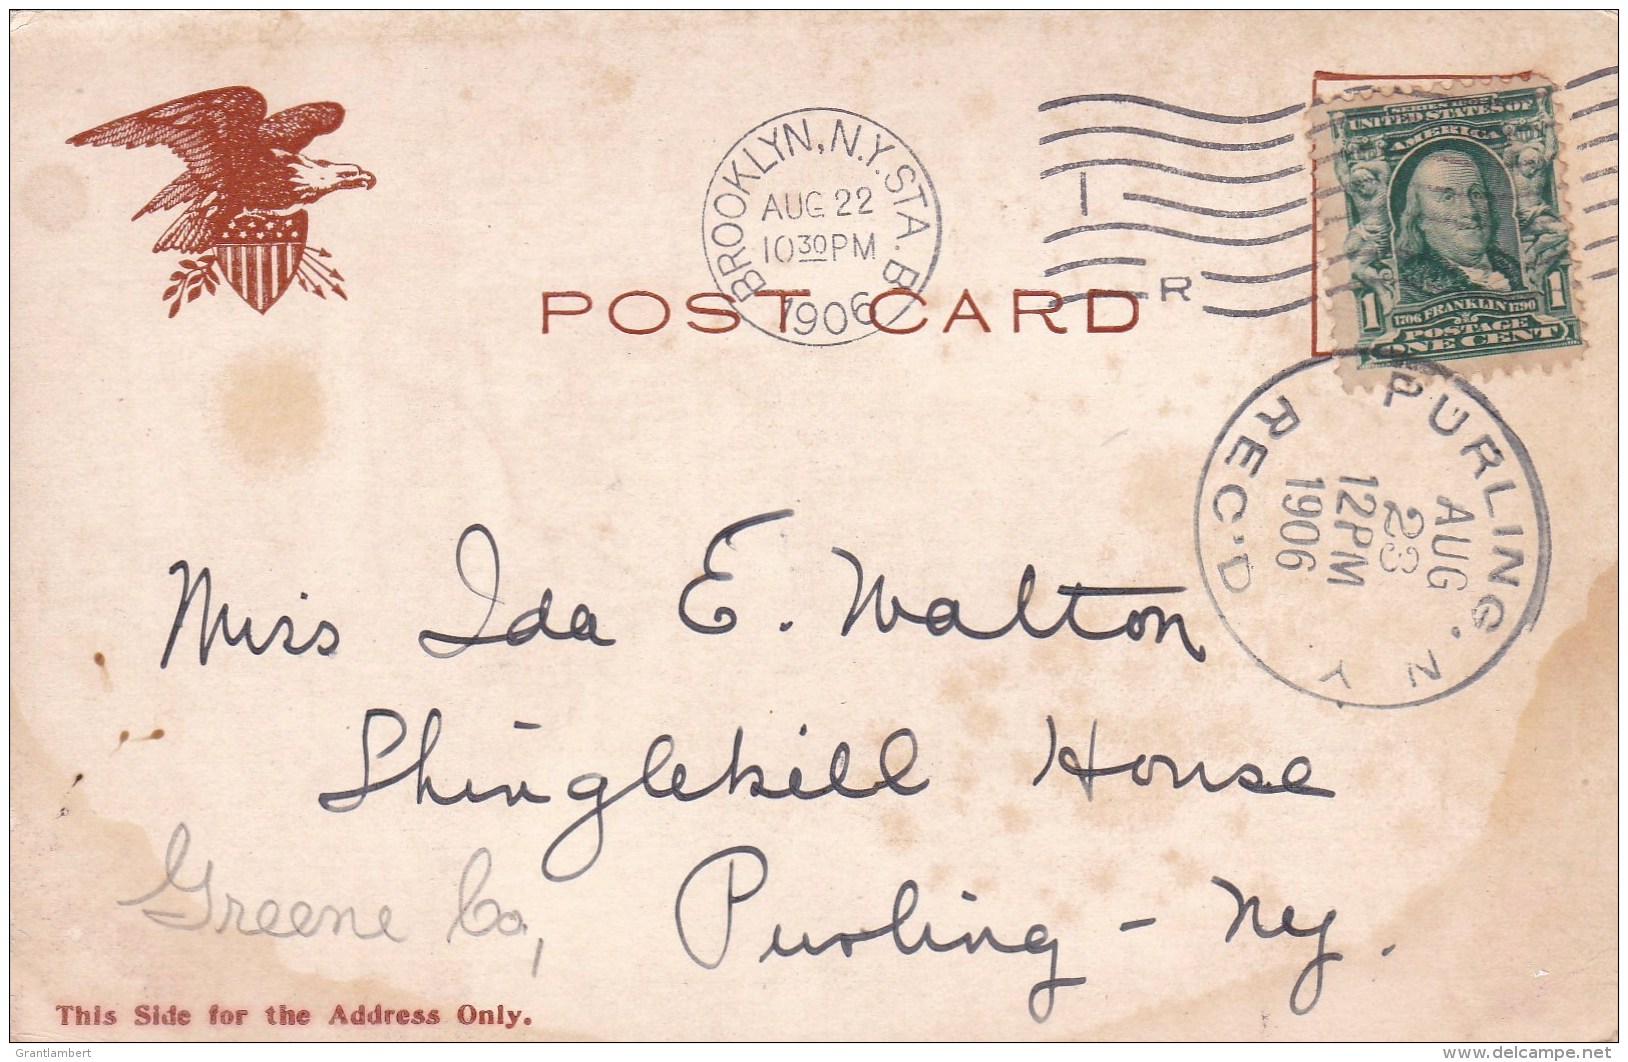 BROOKLYN, N.Y. STA. B
AUG 22
10 30 PM
1906
I
R
SERIES 1902
UNITED STATES OF
AMERICA
1706 FRANKLIN 1790
1 1
POSTAGE
ONE CENT
POST CARD
PURLING. N Y
REC'D
AUG
23
12PM
1906
Miss Ida E. Walton
Shinglekill House
Greene Co, Purling - Ny.
This Side for the Address Only.
Grantlambert
www.delcampe.net